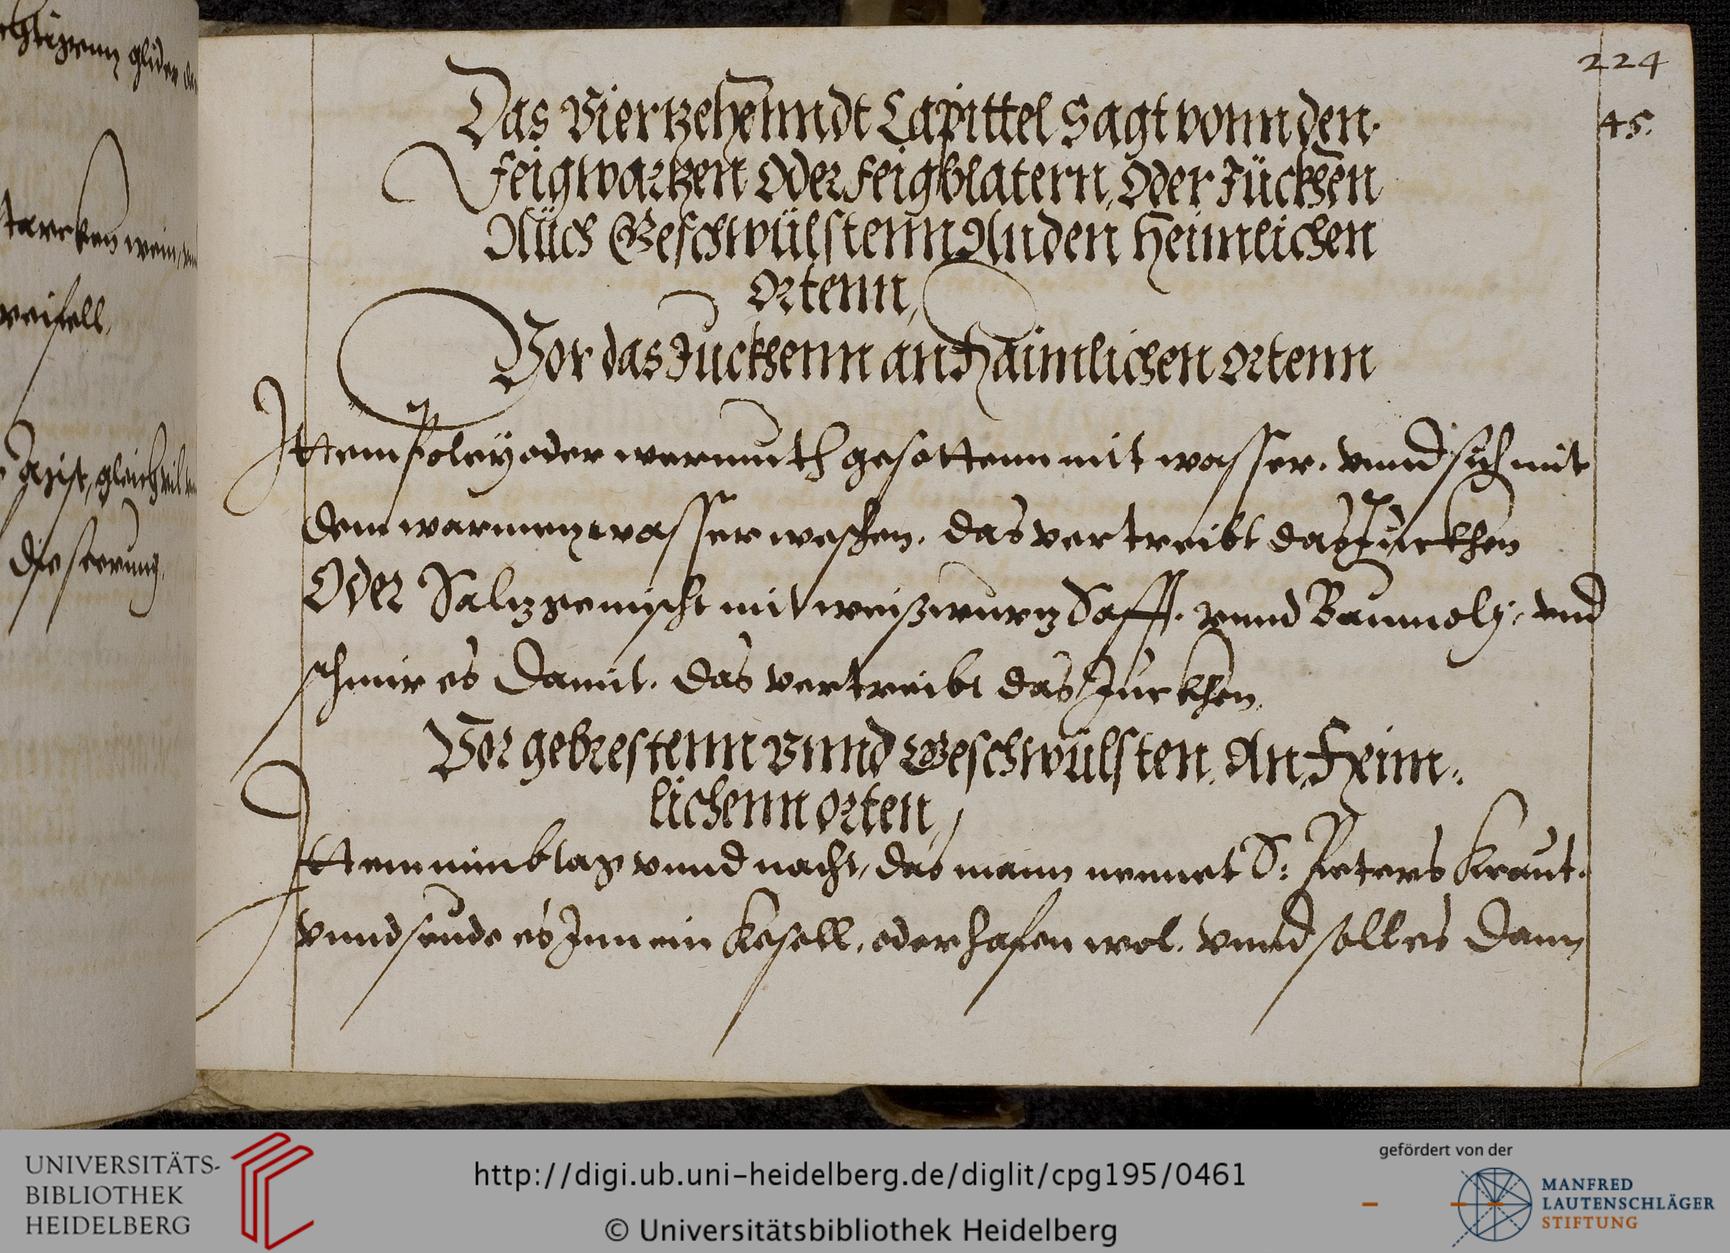 224
45.
Das Viertzehenndt Capittel Sagt vonn den
Feigwartzen Oder Feigblatern, Oder Jückhen
Auch Geschwülstenn An den Heimlichen
Ortenn,
Vor das Juckhenn an Haimlichen Ortenn
Ittem Poley oder wermuth gesottenn mit wasser. vnnd sich mit
dem warmen wasser weschen. das vertreibt das Juckhen
Oder Saltz gemischt mit weißwurtz Safft. vnnd Baumoly, vnd
schmir es damit. das vertreibt das Juckhen.
Vor gebrestenn Vnnd Geschwülsten An Heim-
lichenn Orten,
Ittem nimb tag vnnd nacht, das mann nennet S: Peters Kraut.
vnnd seude es Inn ein Kesell, oder hafen wol. vnnd soll es dann
glider
wein,
gleich
UNIVERSITÄTS-
BIBLIOTHEK
HEIDELBERG
http://digi.ub.uni-heidelberg.de/diglit/cpg195/0461
© Universitätsbibliothek Heidelberg
gefördert von der
MANFRED
LAUTENSCHLÄGER
STIFTUNG